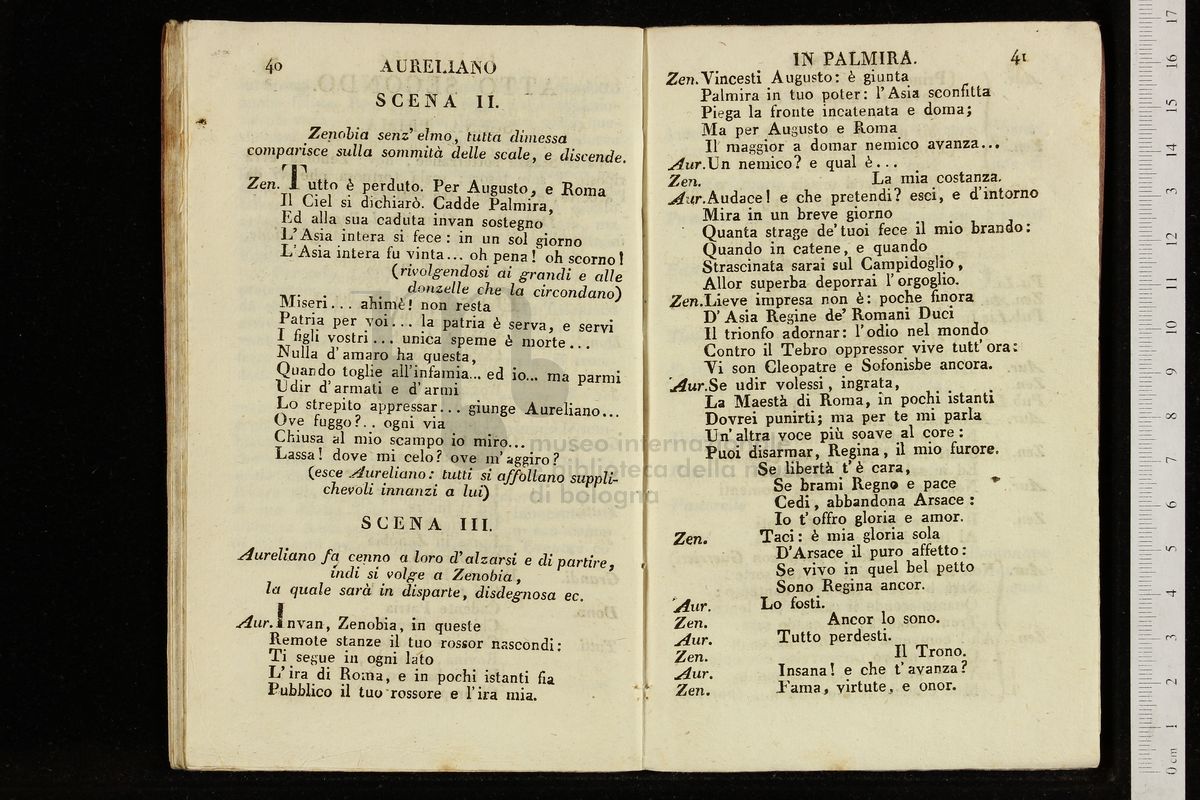 40 AURELIANO
SCENA II.
Zenobia senz' elmo, tutta dimessa
comparisce sulla sommità delle scale, e discende.
Zen. Tutto è perduto. Per Augusto, e Roma
Il Ciel si dichiarò. Cadde Palmira,
Ed alla sua caduta invan sostegno
L'Asia intera si fece: in un sol giorno
L'Asia intera fu vinta... oh pena! oh scorno!
(rivolgendosi ai grandi e alle
donzelle che la circondano)
Miseri... ahimè! non resta
Patria per voi... la patria è serva, e servi
I figli vostri... unica speme è morte...
Nulla d'amaro ha questa,
Quando toglie all'infamia... ed io... ma parmi
Udir d'armati e d'armi
Lo strepito appressar... giunge Aureliano...
Ove fuggo?.. ogni via
Chiusa al mio scampo io miro...
Lassa! dove mi celo? ove m'aggiro?
(esce Aureliano: tutti si affollano suppli-
chevoli innanzi a lui)
SCENA III.
Aureliano fa cenno a loro d'alzarsi e di partire,
indi si volge a Zenobia,
la quale sarà in disparte, disdegnosa ec.
Aur. Invan, Zenobia, in queste
Remote stanze il tuo rossor nascondi:
Ti segue in ogni lato
L'ira di Roma, e in pochi istanti fia
Pubblico il tuo rossore e l'ira mia.
IN PALMIRA. 41
Zen. Vincesti Augusto: è giunta
Palmira in tuo poter: l'Asia sconfitta
Piega la fronte incatenata e doma;
Ma per Augusto e Roma
Il maggior a domar nemico avanza...
Aur. Un nemico? e qual è...
Zen. La mia costanza.
Aur. Audace! e che pretendi? esci, e d'intorno
Mira in un breve giorno
Quanta strage de' tuoi fece il mio brando:
Quando in catene, e quando
Strascinata sarai sul Campidoglio,
Allor superba deporrai l'orgoglio.
Zen. Lieve impresa non è: poche finora
D'Asia Regine de' Romani Duci
Il trionfo adornar: l'odio nel mondo
Contro il Tebro oppressor vive tutt'ora:
Vi son Cleopatre e Sofonisbe ancora.
Aur. Se udir volessi, ingrata,
La Maestà di Roma, in pochi istanti
Dovrei punirti; ma per te mi parla
Un'altra voce più soave al core:
Puoi disarmar, Regina, il mio furore.
Se libertà t'è cara,
Se brami Regno e pace
Cedi, abbandona Arsace:
Io t'offro gloria e amor.
Zen. Taci: è mia gloria sola
D'Arsace il puro affetto:
Se vivo in quel bel petto
Sono Regina ancor.
Aur. Lo fosti.
Zen. Ancor lo sono.
Aur. Tutto perdesti.
Zen. Il Trono.
Aur. Insana! e che t'avanza?
Zen. Fama, virtute, e onor.
museo internazionale
biblioteca della musica
di bologna
0 cm 1 2 3 4 5 6 7 8 9 10 11 12 13 14 15 16 17